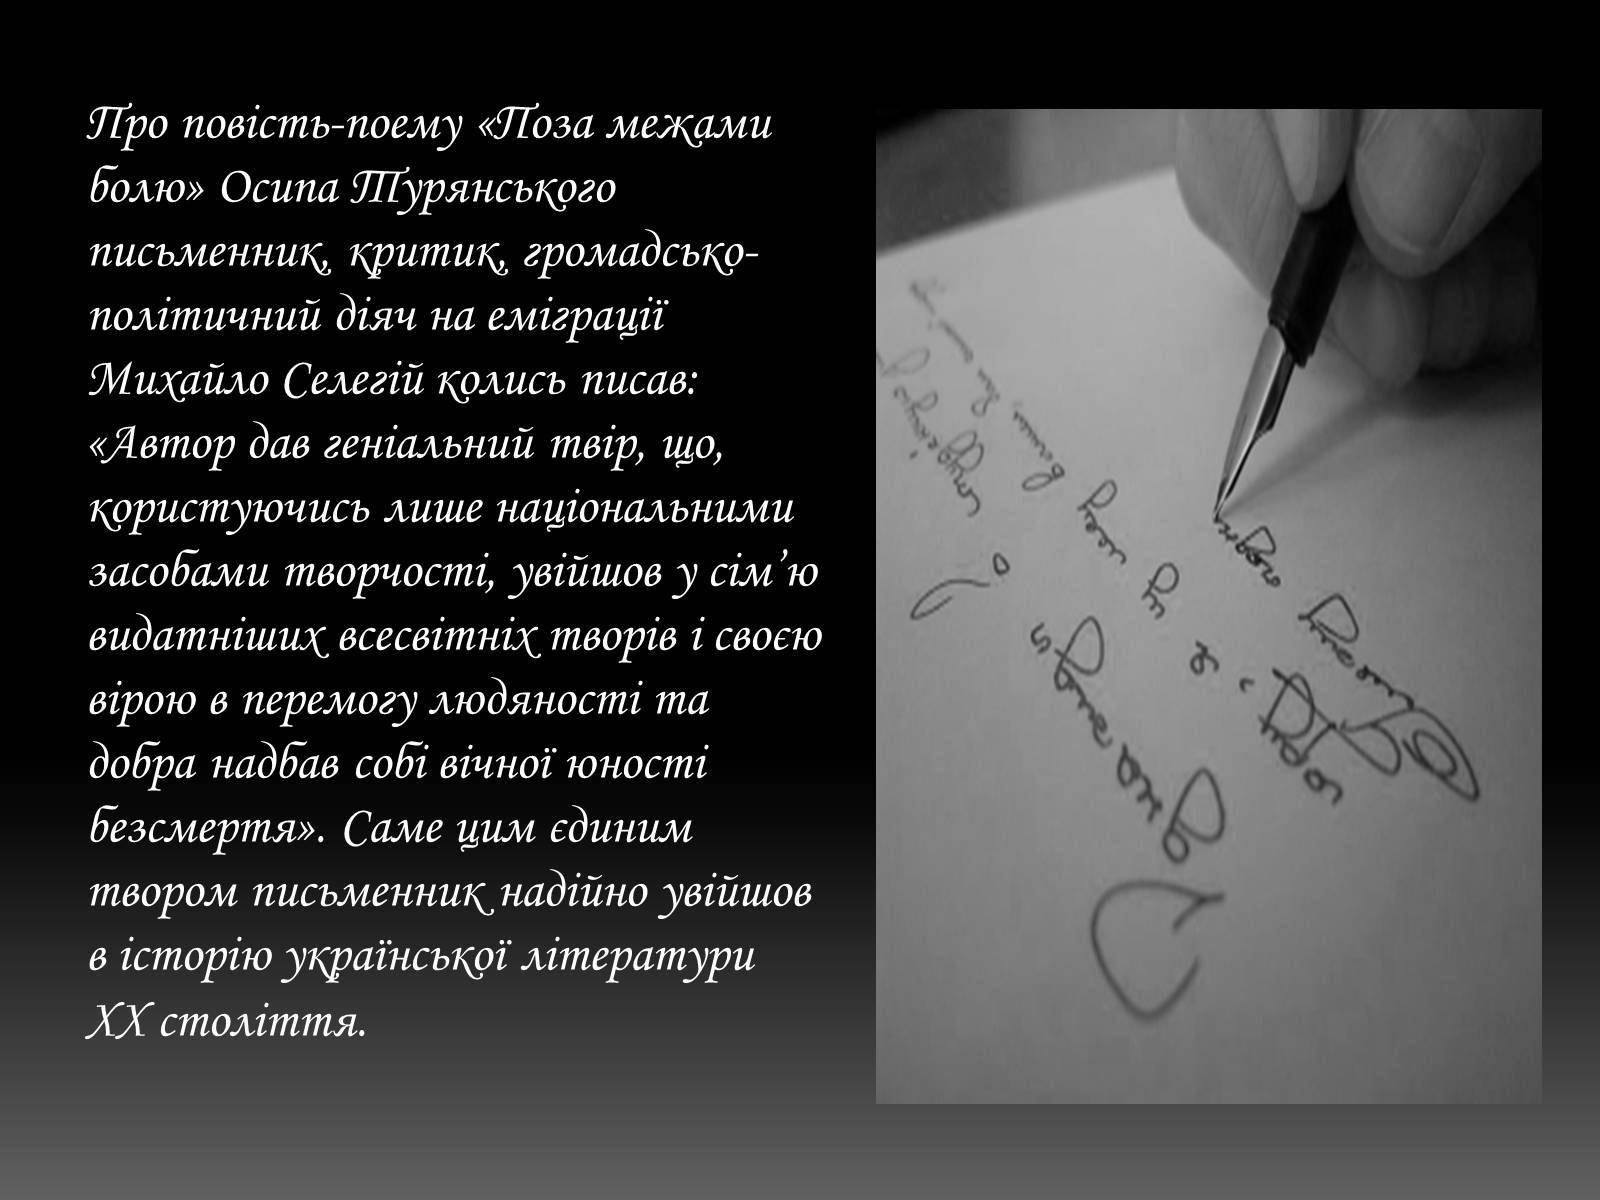 Про повість-поему «Поза межами
болю» Осипа Турянського
письменник, критик, громадсько-
політичний діяч на еміграції
Михайло Селегій колись писав:
«Автор дав геніальний твір, що,
користуючись лише національними
засобами творчості, увійшов у сім’ю
видатніших всесвітніх творів і своєю
вірою в перемогу людяності та
добра надбав собі вічної юності
безсмертя». Саме цим єдиним
твором письменник надійно увійшов
в історію української літератури
XX століття.